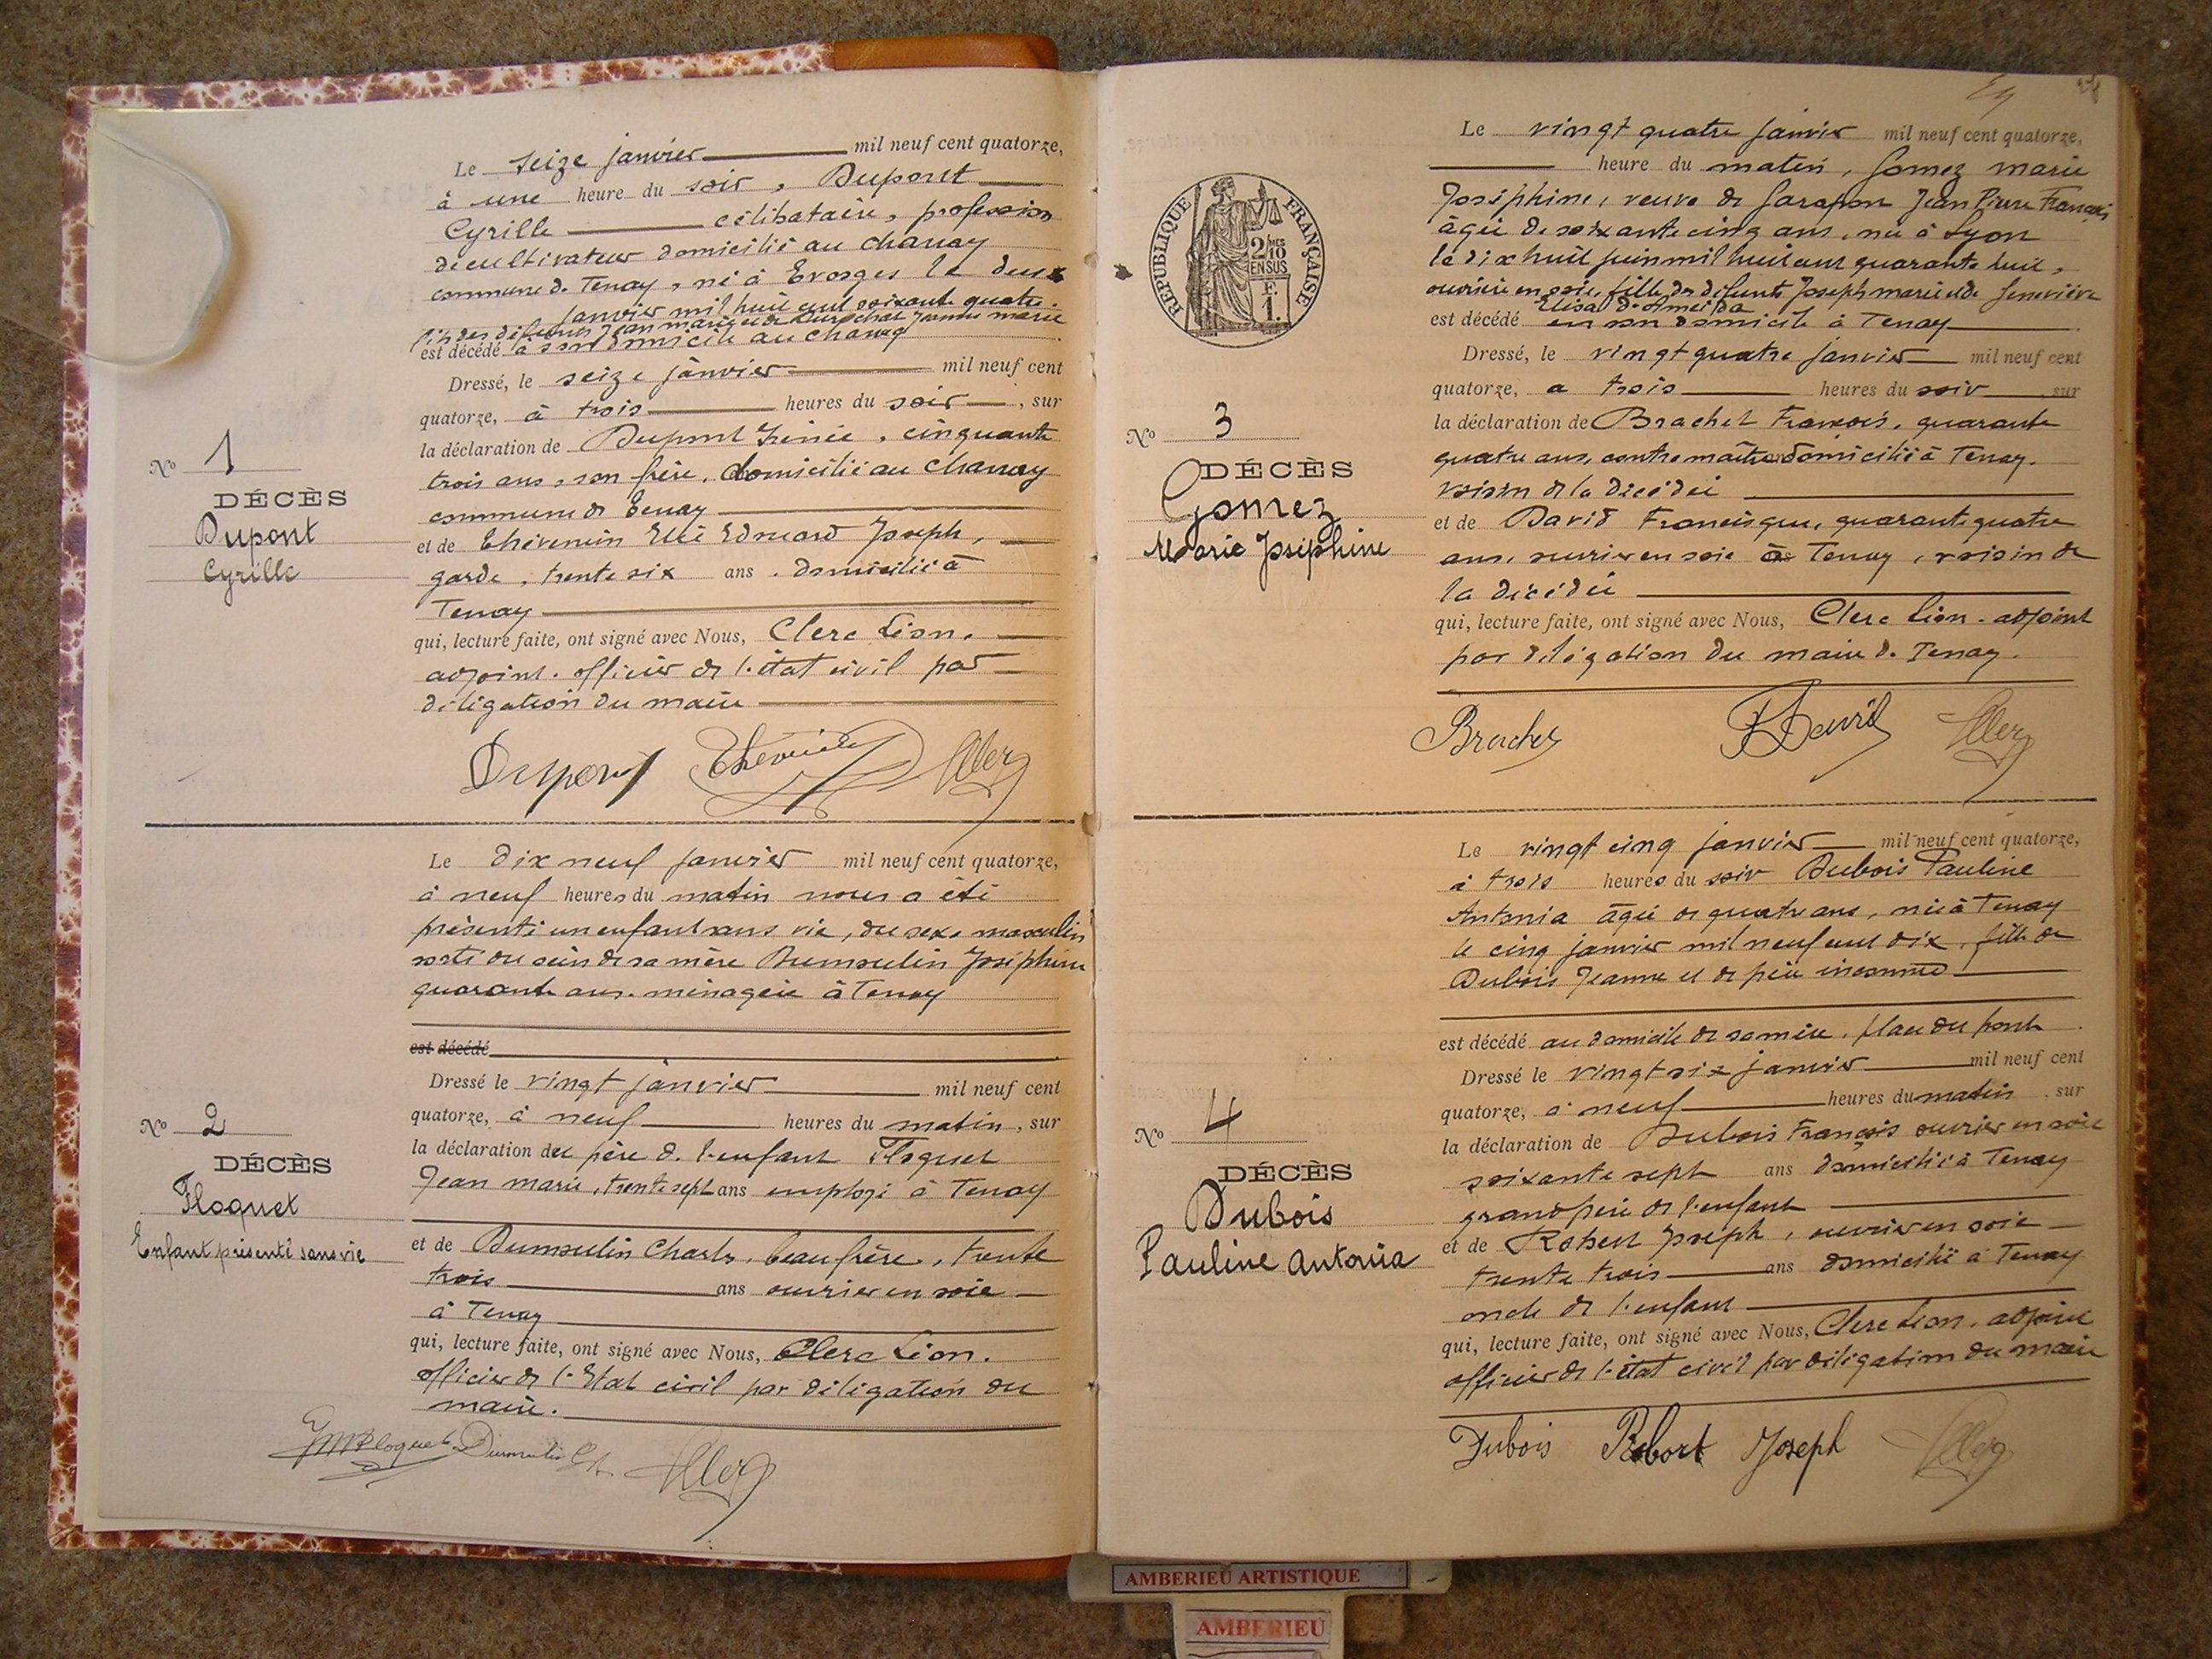 Le seize janvier mil neuf cent quatorze,
à une heure du soir, Dupont
Cyrille célibataire, profession
de cultivateur domicilié au chanay
commune de Tenay, né à Evosges le deux
janvier mil huit cent soixante quatre.
fils des défunts Jean marie et de Jeanne marie
est décédé à son domicile au chanay
Dressé, le seize janvier mil neuf cent
quatorze, à trois heures du soir, sur
la déclaration de Dupont Irénée, cinquante
trois ans, son frère, domicilié au Chanay
commune de Tenay
et de Thévenin Elie Edouard Joseph,
garde, trente six ans, domicilié à
Tenay
qui, lecture faite, ont signé avec Nous, Clerc Léon,
adjoint, officier de l'état civil par
délégation du maire
Nº 1
DÉCÈS
Dupont
Cyrille
Dupont Thévenin Clerc
Le dix neuf janvier mil neuf cent quatorze,
à neuf heures du matin nous a été
présenté un enfant sans vie, du sexe masculin
sorti du sein de sa mère Dumoulin Joséphine
quarante ans, ménagère à Tenay
est décédé
Dressé le vingt janvier mil neuf cent
quatorze, à neuf heures du matin, sur
la déclaration du père de l'enfant Floquet
Jean marie, trente sept ans employé à Tenay
et de Dumoulin Charles, beau frère, trente
trois ans ouvrier en soie
à Tenay
qui, lecture faite, ont signé avec Nous, Clerc Léon.
officier de l'Etat civil par délégation du
maire.
Nº 2
DÉCÈS
Floquet
Enfant présenté sans vie
JM Floquet Dumoulin Ch Clerc
RÉPUBLIQUE FRANÇAISE
2/10 EN SUS
F. 1.
Le vingt quatre janvier mil neuf cent quatorze,
heure du matin, Gomez marie
Joséphine, veuve de Garapon Jean Pierre François
âgée de soixante cinq ans, née à Lyon
le dix huit juin mil huit cent quarante huit,
ouvrière en soie, fille des défunts Joseph marie et de Geneviève
Elisa d'Ameida
est décédé en son domicile à Tenay
Dressé, le vingt quatre janvier mil neuf cent
quatorze, à trois heures du soir, sur
la déclaration de Brachet François, quarante
quatre ans, contremaître domicilié à Tenay.
voisin de la décédée
et de David Francisque, quarante quatre
ans, ouvrier en soie à Tenay, voisin de
la décédée
qui, lecture faite, ont signé avec Nous, Clerc Léon, adjoint
par délégation du maire de Tenay.
Nº 3
DÉCÈS
Gomez
Marie Joséphine
Brachet F David Clerc
Le vingt cinq janvier mil neuf cent quatorze,
à trois heures du soir Dubois Pauline
Antonia âgée de quatre ans, née à Tenay
le cinq janvier mil neuf cent dix, fille de
Dubois Jeanne et de père inconnu
est décédé au domicile de sa mère, place du pont
Dressé le vingt six janvier mil neuf cent
quatorze, à neuf heures du matin, sur
la déclaration de Dubois François ouvrier en soie
soixante sept ans domicilié à Tenay
grand père de l'enfant
et de Robert Joseph, ouvrier en soie
trente trois ans domicilié à Tenay
oncle de l'enfant
qui, lecture faite, ont signé avec Nous, Clerc Léon, adjoint
officier de l'état civil par délégation du maire
Nº 4
DÉCÈS
Dubois
Pauline Antonia
Dubois Robert Joseph Clerc
AMBERIEU ARTISTIQUE
AMBERIEU